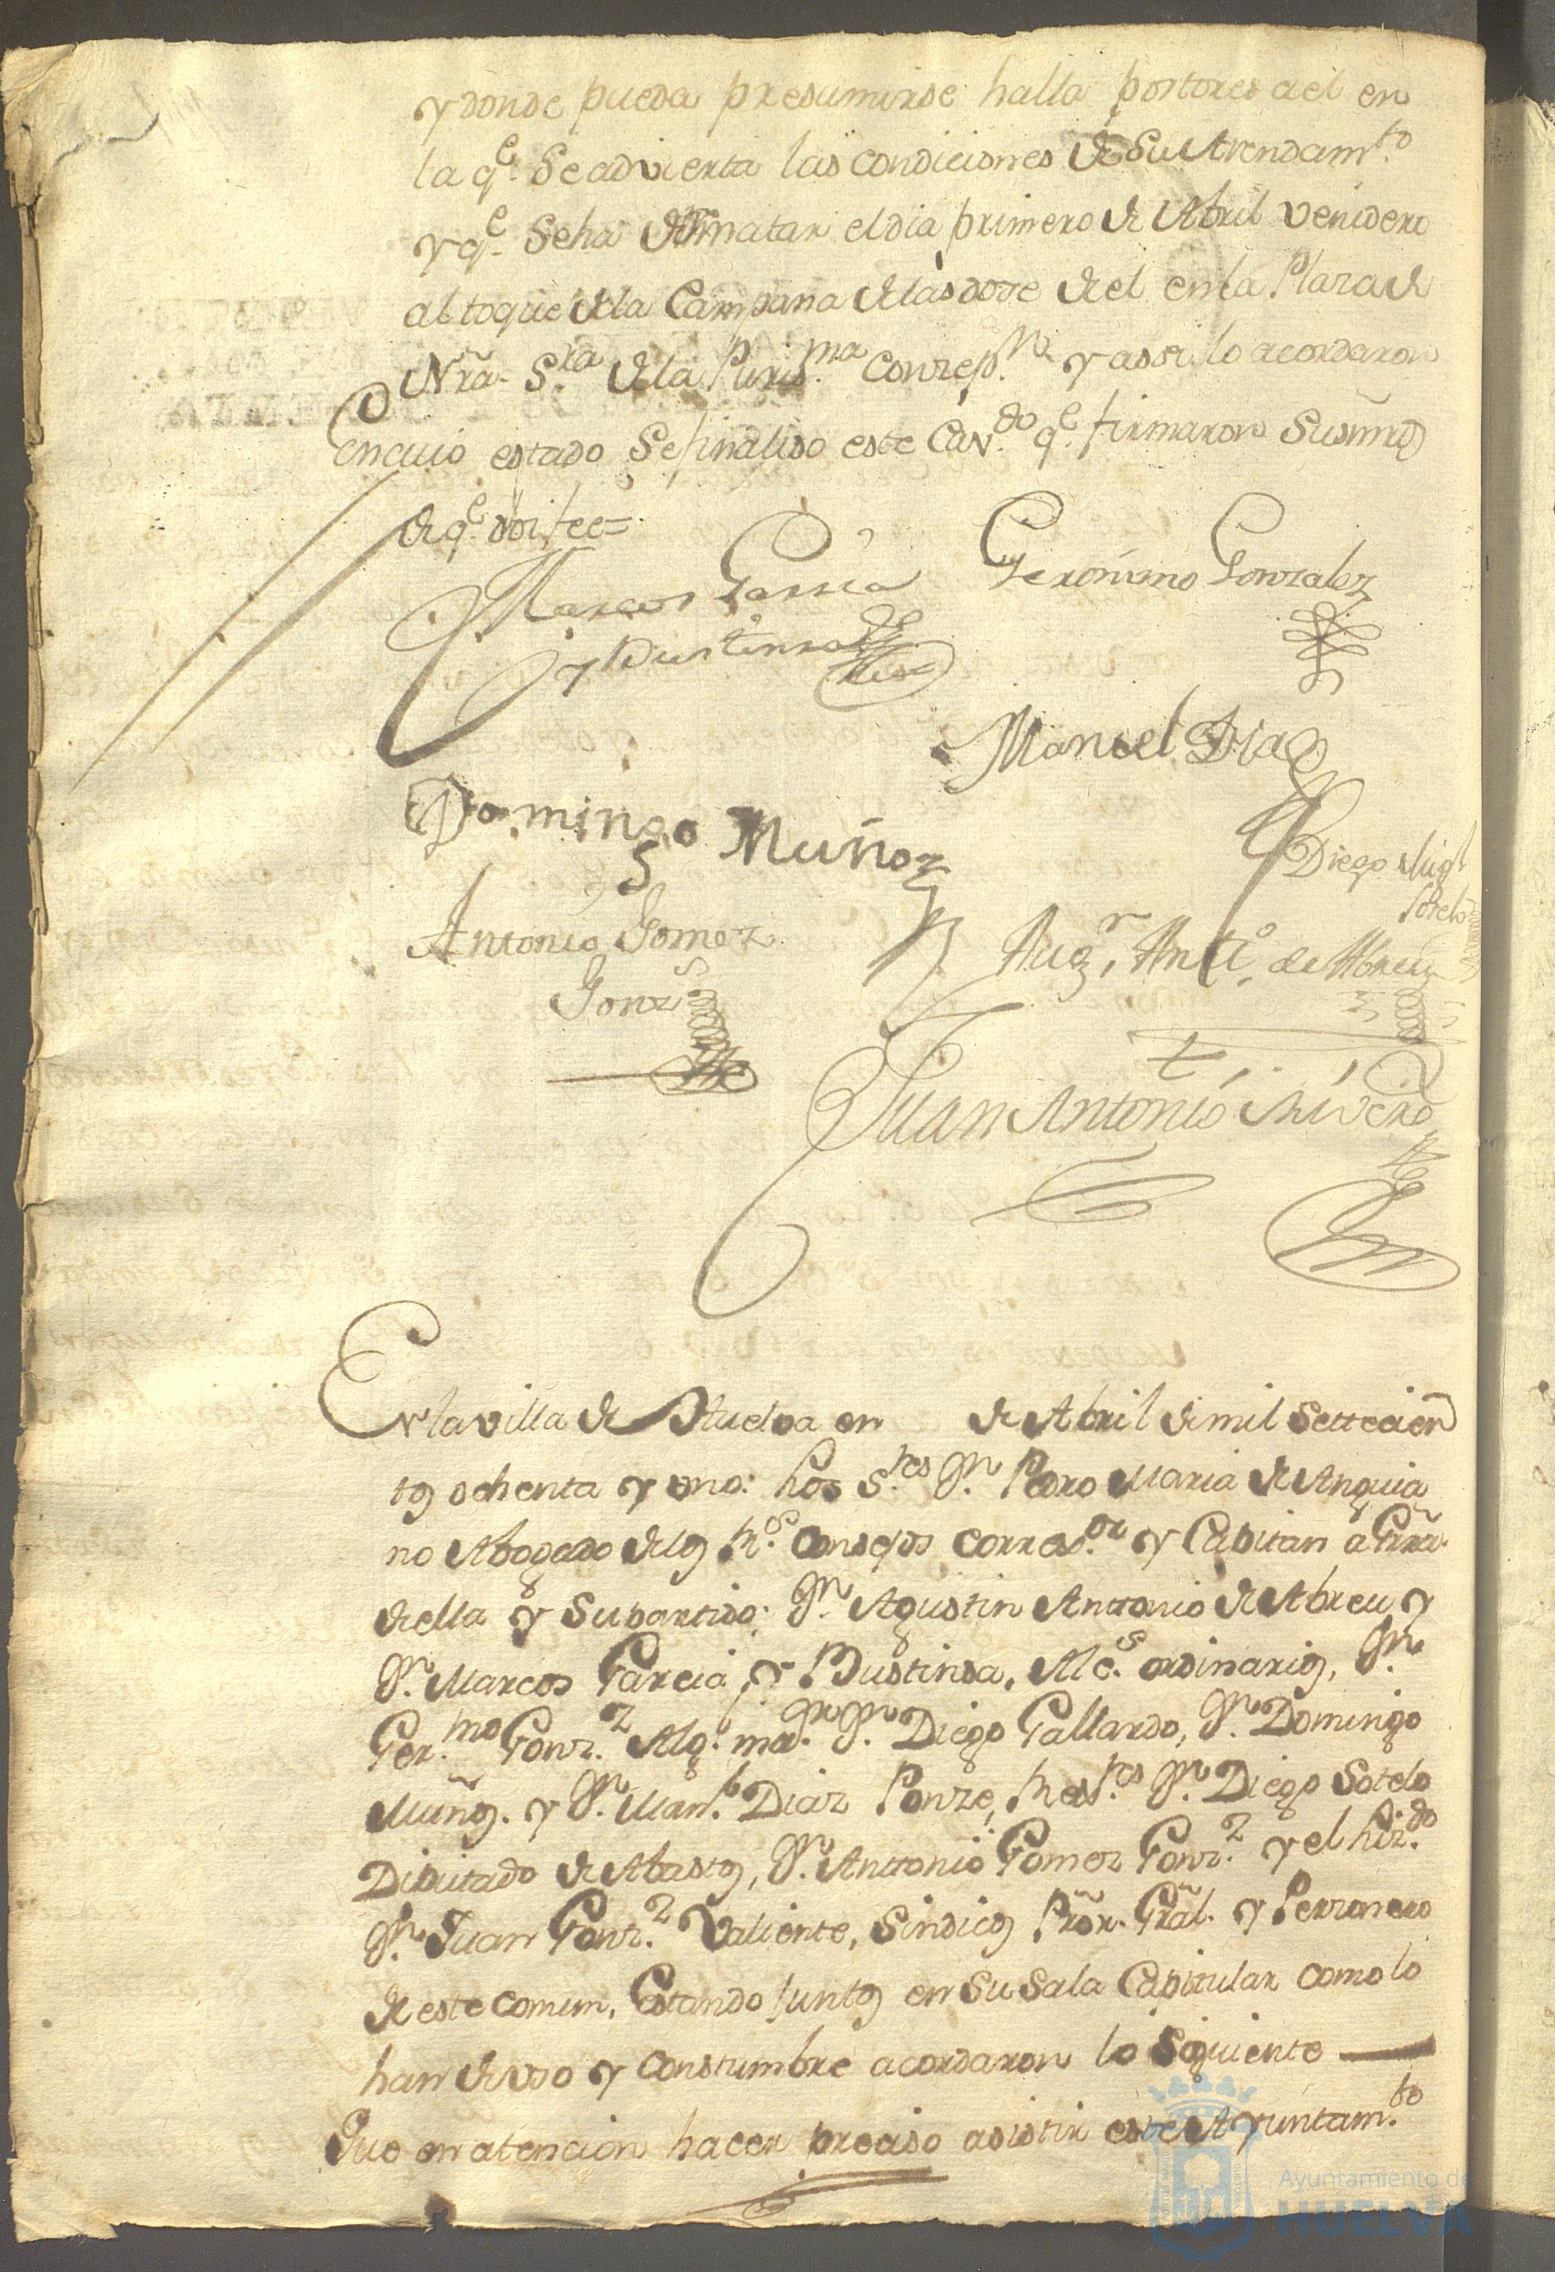 y donde pueda presumirse halla postores a el en
la qe. se advierta las condiciones de su Arrendamto.
y qe. se ha de rematar el dia primero de Abril venidero
al toque de la Campana de las dose de el en la Plaza de
Nrã. Sra. de la Purisma. Conzepn. y assi lo acordaron
En cuio estado se finaliso este Cavdo. qe. firmaron sus mrds
de qe. doi fee=
Marcos Garcia
y Bustinsa
Geronimo Gonzalez
Manuel Diaz
Domingo Muñoz
Diego Migl
Sotelo
Antonio Gomez
Gonzs
Augn. Anto. de Abreu
Juan Antonio Rivero
En la villa de Huelva en de Abril de mil settecien
tos ochenta y uno: Los Sres. Dn. Pedro Maria de Anguia
no Abogado de los Rs. Consejos Corregor. y Capitan a Grra.
de ella y su partido; Dn. Agustin Antonio de Abreu y
Dn. Marcos Garcia y Bustinsa, Alcs. ordinarios, Dn.
Germo. Gonz. Alg. mar. Dn. Diego Gallardo, Dn. Domingo
Muños. y Dn. Manl. Diaz Ponze, Regres. Dn. Diego Sotelo
Diputado de Abastos, Dn. Antonio Gomez Gonz. y el Lizdo.
Dn. Juan Gonz. Valiente, Sindicos Prõr. Grãl. y Perzonero
de este comun, Estando juntos en su sala Capitular como lo
han de uso y constumbre acordaron lo siguiente
Que en atencion hacer preciso asistir este Ayuntamto.
Ayuntamiento de
HUELVA